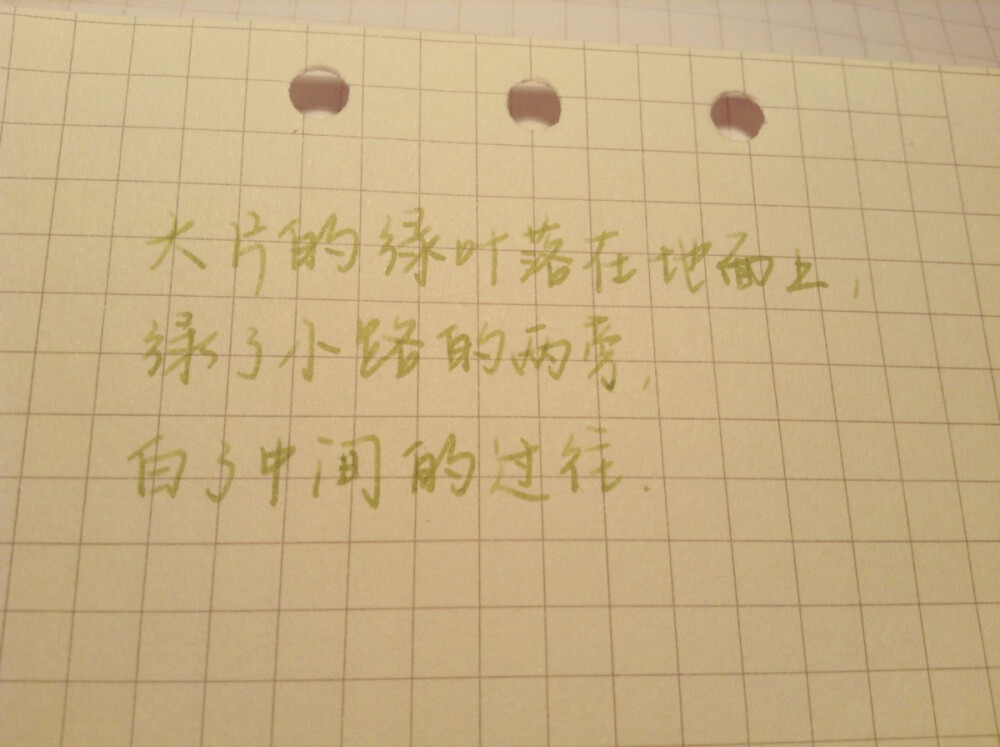 大片的绿叶落在地面上,
绿了小路的两旁,
白了中间的过往.